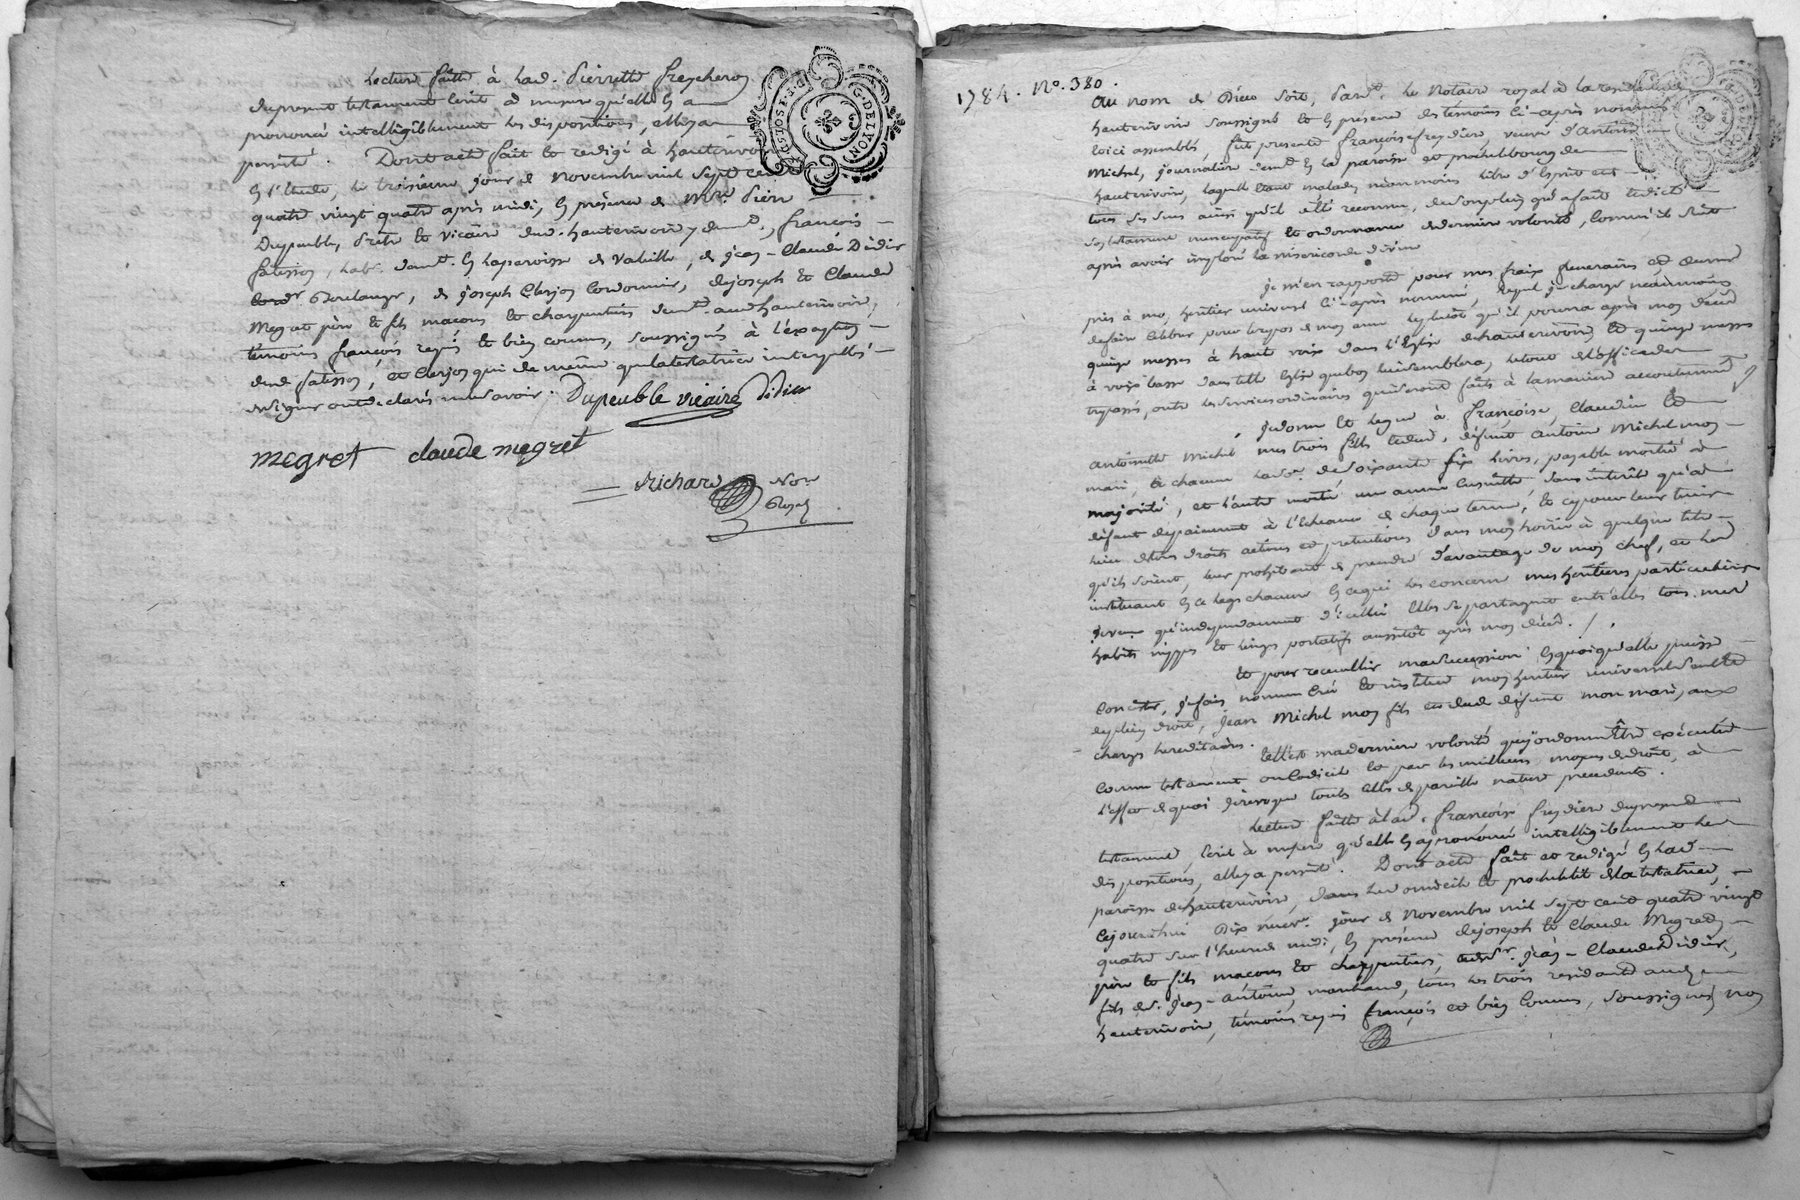 Lecture faitte à lad. Pierrette freycheron
dupresent testament Ecrit a mesure qu'elle En a
prononcé intelligiblement les dispositions, elle y a
persisté. Dont acte fait et redigé à hauterivoire
En l'Etude, le troisieme jour de novembre mil sept cent
quatre vingt quatre après midi, En présence de Mre. Pierre
Dupeuble, Prêtre et vicaire dud. hauterivoire y demt., françois
fatisson, habt. demt. En la paroisse de Vaille, de jean-Claude Didier
Boulanger, de joseph Clerjon Cordonnier, de joseph et Claude
Megret père et fils macons et charpentiers demt. aud hauterivoire,
témoins françois requis et bien connus, soussignés à l'exception
dud fatisson, et Clerjon qui de même que la testatrice interpellés
de signer ont declaré ne le savoir. Dupeuble vicaire Didier
megret claude megret
Richard Nore
Royal
G. DE LYON
1784. No. 380.
Au nom de Dieu soit, pardt. le Notaire royal à la residence de
hauterivoire soussigné et En présence des temoins ci-après nommés
Et ici assemblés fut presente françoise freydiere veuve d'antoine
Michel, journaliere demt. En la paroisse et proche le bourg de
hauterivoire, laquelle Etant malade, néanmoins libre d'Esprit et
tous ses sens ainsi qu'il a été reconnu, de son plein gré a fait et dicté
son testament nuncupatif et ordonnance de derniere volonté, comme il suit
après avoir imploré la misericorde divine
je m'en rapporte pour mes frais funeraires et œuvres
pies à mon héritier universel ci-après nommé, lequel je charge néanmoins
de faire celebrer pour le repos de mon ame le plutôt qu'il pourra après mon décès
quinze messes à haute voix dans l'Eglise de hauterivoire et quinze messes
à voix basse dans telle Eglise que bon lui semblera, le tout à l'office des
trepassés, outre les services ordinaires qui seront faits à la maniere accoutumée
je donne et legue à françoise, Claudine et
antoinette Michel mes trois filles et dud. défunt antoine Michel mon
mari, à chacune la so. de soixante six livres, payable moitié à
majorité, et l'autre moitié une année ensuitte sans intérêt qu'à
défaut de paiement à l'Echeance de chaque terme, et ce pour leur tenir
lieu de tous droits actions et pretentions dans mon hoirie à quelque titre
qu'ils soient, leur prohibant de prendre d'avantage de mon chef, et les
instituant En ce legs chacune En ce qui les concerne mes héritieres particulières
je veux qu'independamment d'icellui Elles se partagent entr'elles tous mes
habits nippes et linges portatifs aussitôt après mon décès.
Et pour recueillir ma succession En quoi qu'elle puisse
Consister, je fais nomme Crée et institue mon heritier universel seul et
de plein droit, jean Michel mon fils et dud défunt mon mari, aux
charges hereditaires.
telle est ma derniere volonté que j'ordonne Être exécutée
comme testament ou Codicile et par les meilleurs moyens de droit, à
l'effet de quoi je revoque touts autres de pareille nature precedents.
Lecture faitte à lad. françoise freydiere dupresent
testament, Ecrit à mesure qu'elle En a prononcé intelligiblement les
dispositions, elle y a persisté. Dont acte fait et redigé En lad
paroisse de hauterivoire, dans le domicile et proche le lit de la testatrice,
Cejourd'hui Dix neuve. jour de novembre mil sept cent quatre vingt
quatre sur l'heure de midi, En présence de joseph et Claude Megret
père et fils macons et charpentiers, et de sr. jean-Claude Didier,
fils de s. jean-antoine, marchand, tous les trois residants aud
hauterivoire, témoins requis françois et bien connus, soussignés, non